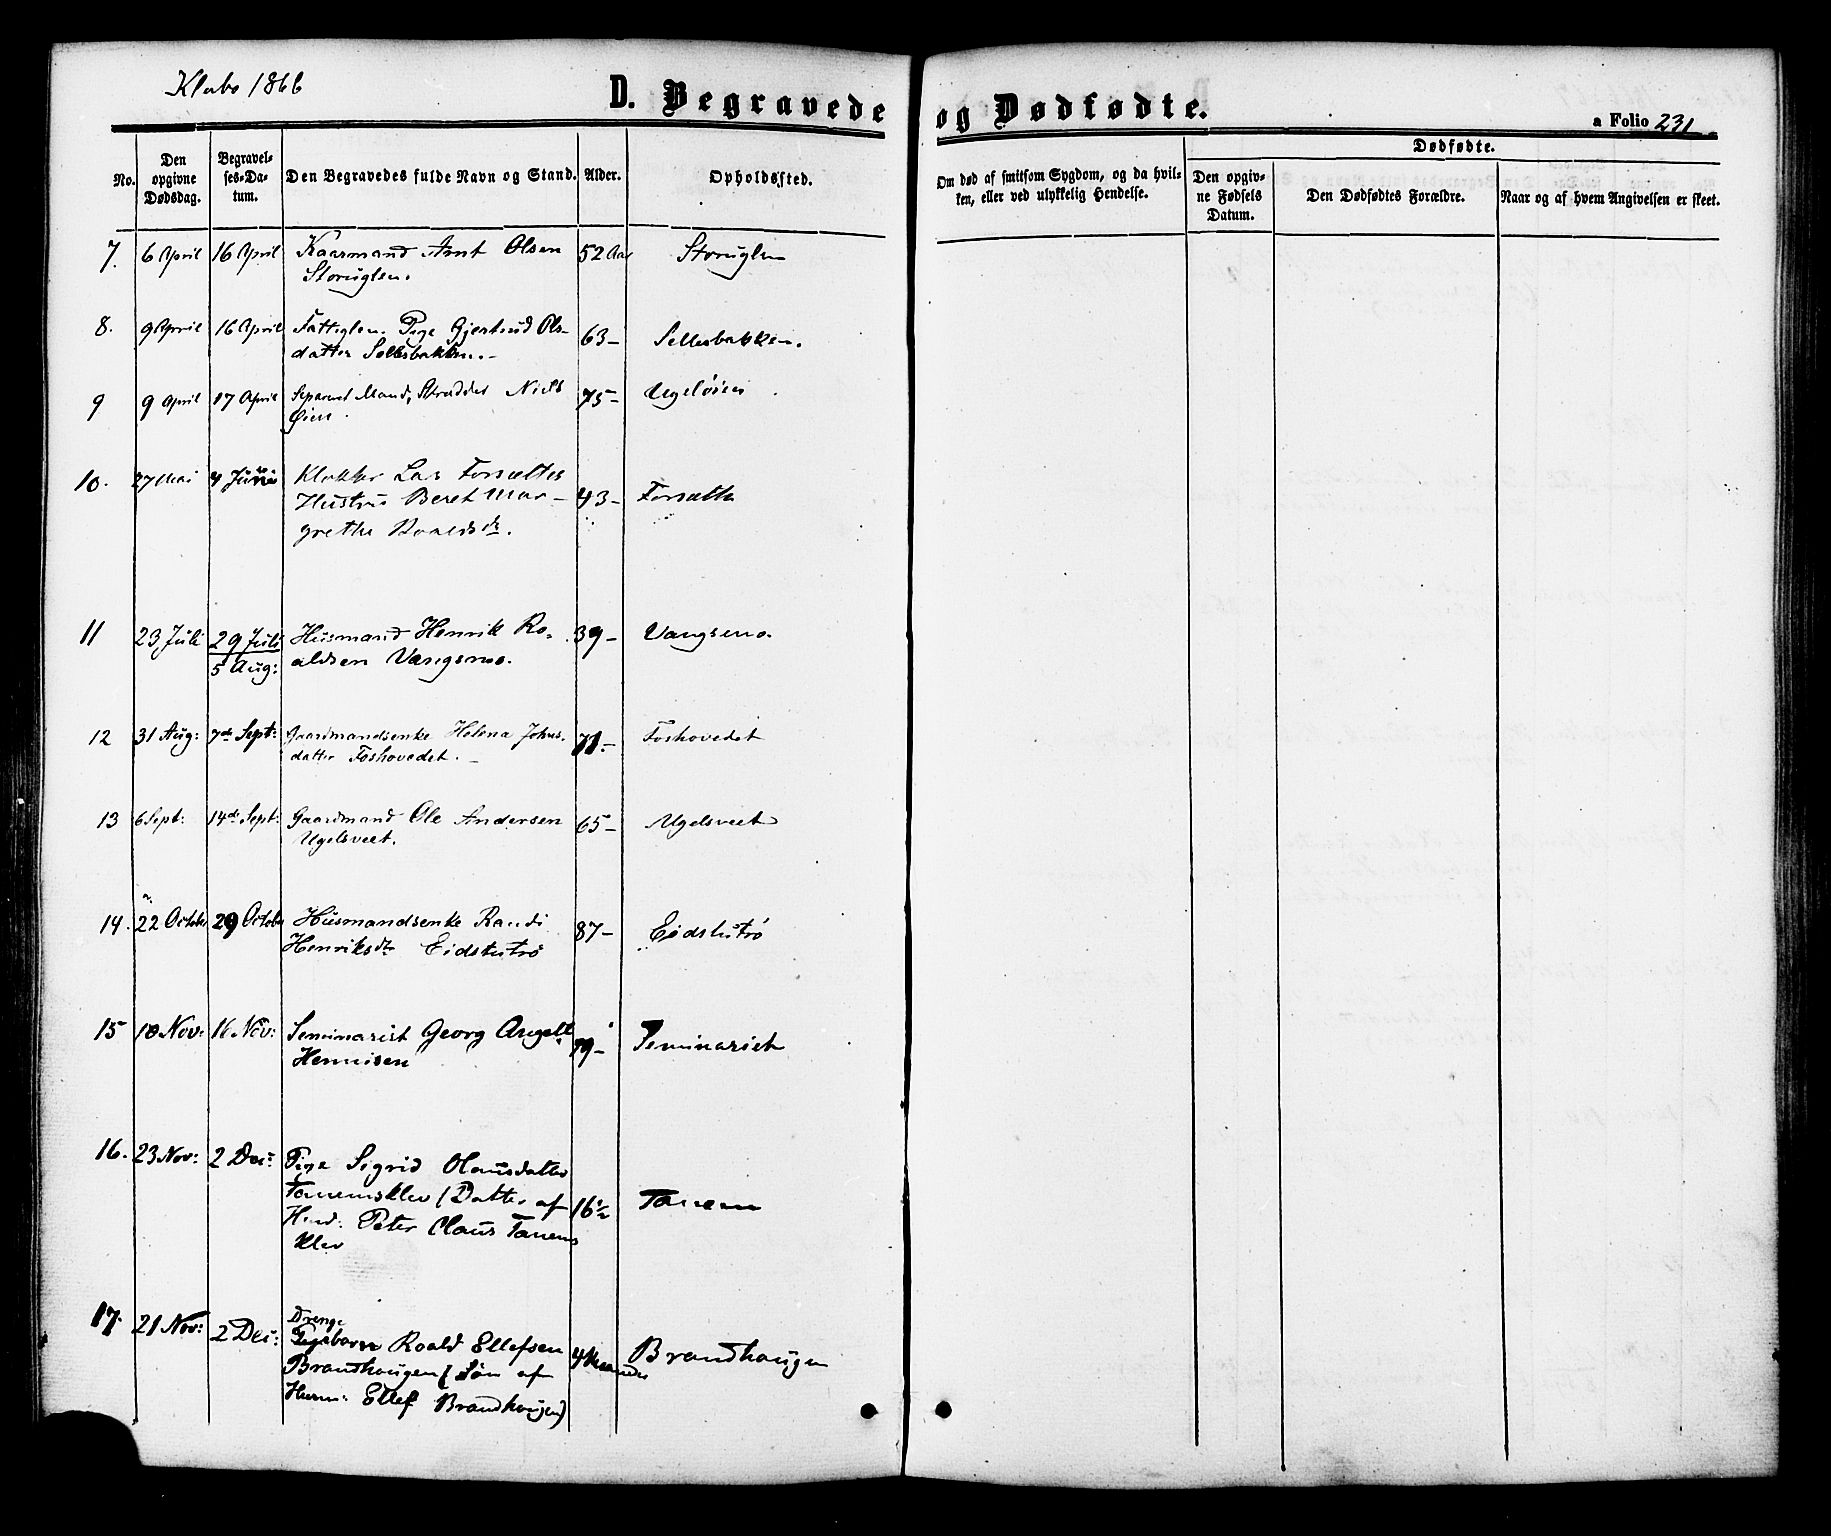 Klæbo 1866
D. Begravede og Dødfødte.
a Folio 231
Dødfødte.
No.
Den opgivne Dødsdag.
Begravelses-Datum.
Den Begravedes fulde Navn og Stand.
Alder.
Opholdssted.
Om død af smitsom Sygdom, og da hvilken, eller ved ulykkelig Hendelse.
Den opgivne Fødsels Datum.
Den Dødfødtes Forældre.
Naar og af hvem Angivelsen er skeet.
7. 6 April 16 April Kaarmand Arnt Olsen 52 Aar Storuglen
Storuglen.
8. 9 April 16 April Fattiglem. Pige Gjertrud Ols- 63- Sellesbakken.
datter Sellesbakken.-
9 9 April 17 April Separeret Mand, Skrædder Niels 75- Ugeløien
Øien.
10. 27 Mai 4 Juni Klokker Lars Forsæths 43- Forsæth
Hustru Beret Mar-
grethe Roaldsdr.
11 23 Juli 29 Juli Husmand Henrik Ro- 39- Vangsmo.
5 Aug: aldsen Vangsmo.
12 31 Aug: 7de Sept: Gaardmandsenke Helena Johns- 71- Foshovedet
datter Foshovedet.-
13 6 Sept: 14de Sept: Gaardmand Ole Andersen 65- Ugelsveet
Ugelsveet.
14. 22 October 29 October Husmandsenke Randi 87- Eidstutrø
Henriksdtr Eidstutrø
15 10 Nov: 16 Nov: Seminarist Georg Angell 19- Seminariet
Hennisen
16. 23 Nov: 2 Dec: Pige Sigrid Olausdatter
Tanemsklev (Datter af 16½ Tanem
Husmd: Peter Olaus Tanems
klev
17. 21 Nov: 2 Dec: Drenge
Pigebarn Roald Ellefsen 4 Maaneder Brandhaugen
Brandhaugen (Søn af
Husm: Ellef Brandhaugen)